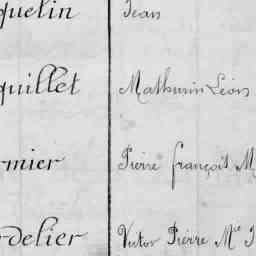 quelin Jean
quillet Mathurin Léon
rmier Pierre françois M
rdelier Victor Pierre Mie J